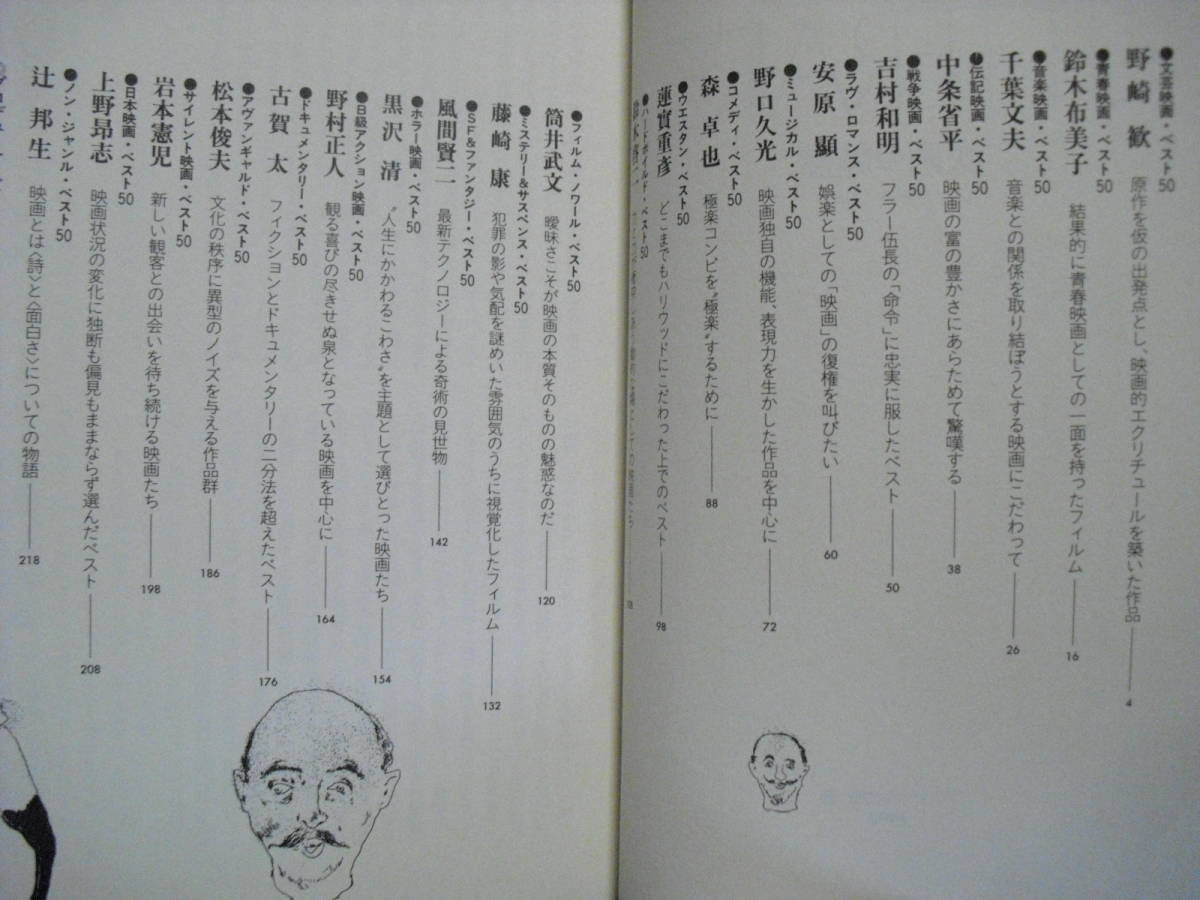 ●文芸映画・ベスト50
野崎 歓 原作を仮の出発点とし、映画的エクリチュールを築いた作品 4
●青春映画・ベスト50
鈴木布美子 結果的に青春映画としての一面を持ったフィルム 16
●音楽映画・ベスト50
千葉文夫 音楽との関係を取り結ぼうとする映画にこだわって 26
●伝記映画・ベスト50
中条省平 映画の富の豊かさにあらためて驚嘆する 38
●戦争映画・ベスト50
吉村和明 フラー伍長の「命令」に忠実に服したベスト 50
●ラヴ・ロマンス・ベスト50
安原 顯 娯楽としての「映画」の復権を叫びたい 60
●ミュージカル・ベスト50
野口久光 映画独自の機能、表現力を生かした作品を中心に 72
●コメディ・ベスト50
森 卓也 極楽コンビを〝極楽〟するために 88
●ウエスタン・ベスト50
蓮實重彦 どこまでもハリウッドにこだわった上でのベスト 98
●ハードボイルド・ベスト50
●フィルム・ノワール・ベスト50
筒井武文 曖昧さこそが映画の本質そのものの魅惑なのだ 120
●ミステリー&サスペンス・ベスト50
藤崎 康 犯罪の影や気配を謎めいた雰囲気のうちに視覚化したフィルム 132
●SF&ファンタジー・ベスト50
風間賢二 最新テクノロジーによる奇術の見世物 142
●ホラー映画・ベスト50
黒沢 清 〝人生にかかわるこわさ〟を主題として選びとった映画たち 154
●B級アクション映画・ベスト50
野村正人 観る喜びの尽きせぬ泉となっている映画を中心に 164
●ドキュメンタリー・ベスト50
古賀 太 フィクションとドキュメンタリーの二分法を超えたベスト 176
●アヴァンギャルド・ベスト50
松本俊夫 文化の秩序に異型のノイズを与える作品群 186
●サイレント映画・ベスト50
岩本憲児 新しい観客との出会いを待ち続ける映画たち 198
●日本映画・ベスト50
上野昻志 映画状況の変化に独断も偏見もままならず選んだベスト 208
●ノン・ジャンル・ベスト50
辻 邦生 映画とは〈詩〉と〈面白さ〉についての物語 218